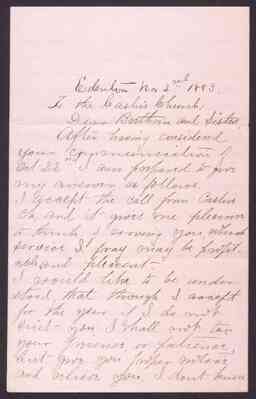 Edenton Nov 2nd 1893.
To the Cashie Church;
Dear Brethren and Sisters,
After having considered
your communication of
Oct 22nd I am prepared to give
my answer as follows.
I accept the call from Cashie
Ch, and it gives me pleasure
to think of serving you, which
service I pray may be profit-
able and pleasant.
I would like to be under-
stood that though I accept
for the year if I do not
suit you I shall not tax
your forbearance or patience,
but give you proper notice
and relieve you. I don't know